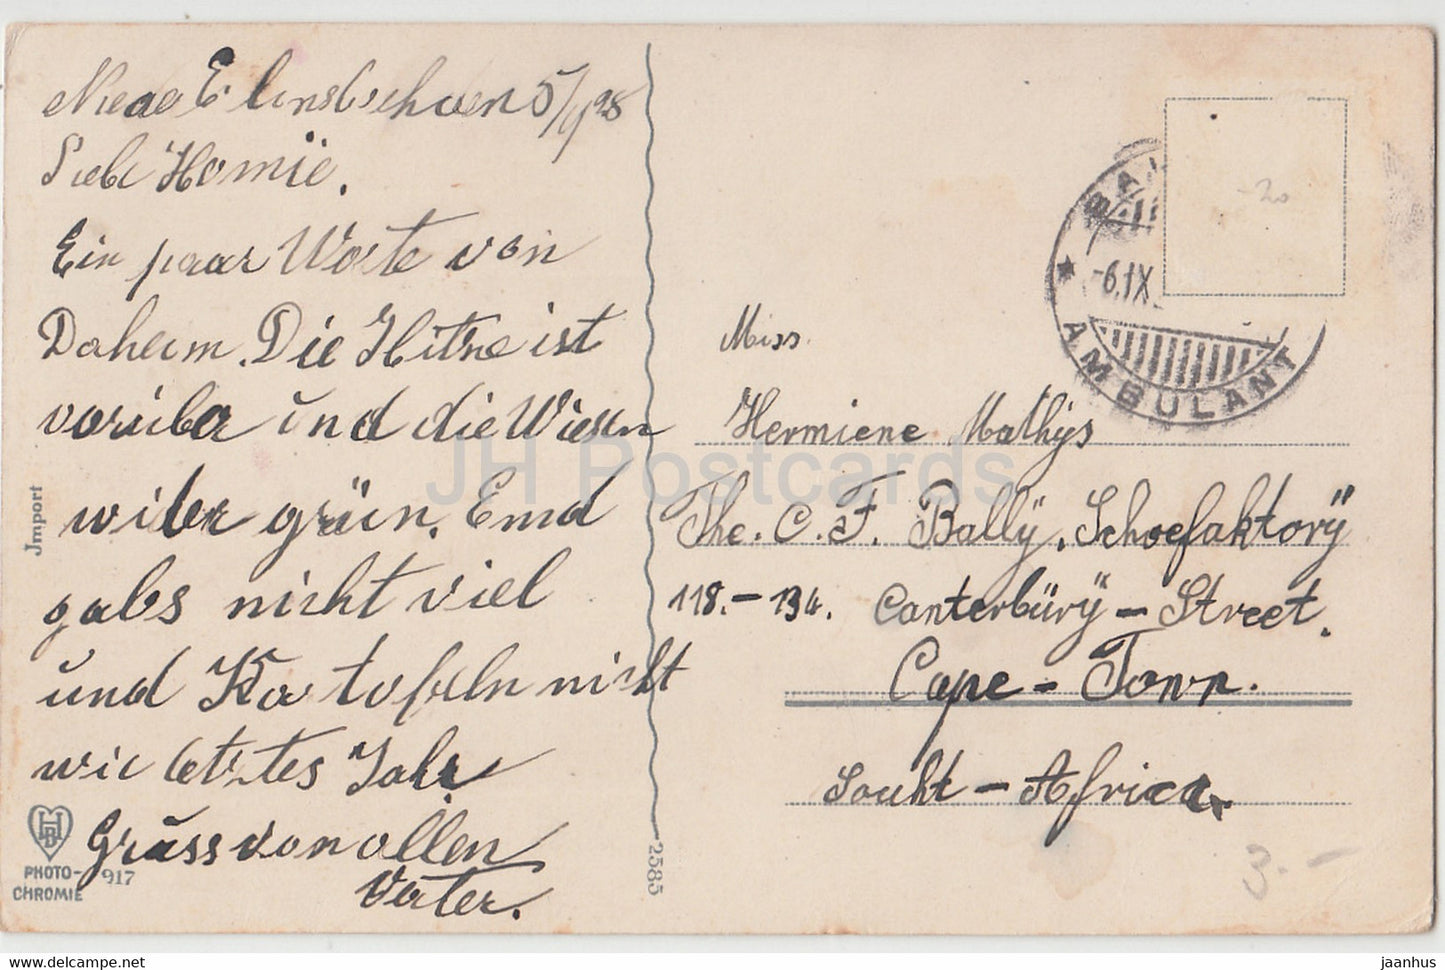 Niede Erlinsbachen 5/9 28
Liebe Homie.
Ein paar Worte von
Daheim. Die Hitze ist
vorüber und die Wiesen
wider grün. Emd
gabs nicht viel
und Katofeln nicht
wie letztes Jahr
Gruss von allen
Vater.
Jmport
HB
PHOTO-
CHROMIE 917
2585
BA
-6.IX.
★ AMBULANT
-20
Miss.
Hermiene Mathys
The. C. F. Ballÿ. Schoefaktorÿ
118.-134. Canterbürÿ-Street.
Cape-Town.
Soukt-Africa.
3.-
JH Postcards
https://www.delcampe.net
jaanhus